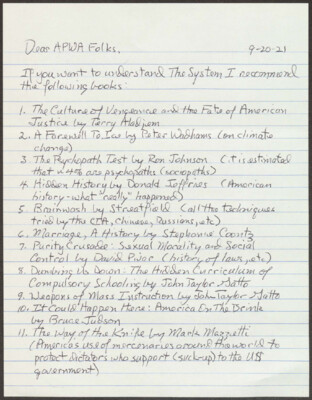 Dear APWA Folks,    9-20-21
If you want to understand The System I recommend
the following books:
1. The Culture of Vengeance and the Fate of American
Justice by Terry Aladjem
2. A Farewell To Ice by Peter Wadhams (on climate
change)
3. The Psychopath Test by Ron Johnson (it is estimated
that are psychopaths (sociopaths)
4. Hidden History by Donald Jeffries (American
history - what "really" happened)
5. Brainwash by Streatfield (all the techniques
tried by the CIA, Chinese, Russians, etc)
6. Marriage, A History by Stephanie Coontz
7. Purity Crusade: Sexual Morality and Social
Control by David Pivar (history of laws, etc)
8. Dumbing Us Down: The Hidden Curriculum of
Compulsory Schooling by John Taylor Gatto
9. Weapons of Mass Instruction by John Taylor Gatto
10. It Could Happen Here: America On The Brink
by Bruce Judson
11. The Way of the Knife by Mark Mazzetti
(America's use of mercenaries around the world to
protect dictators who support (suck-up) to the US
government)